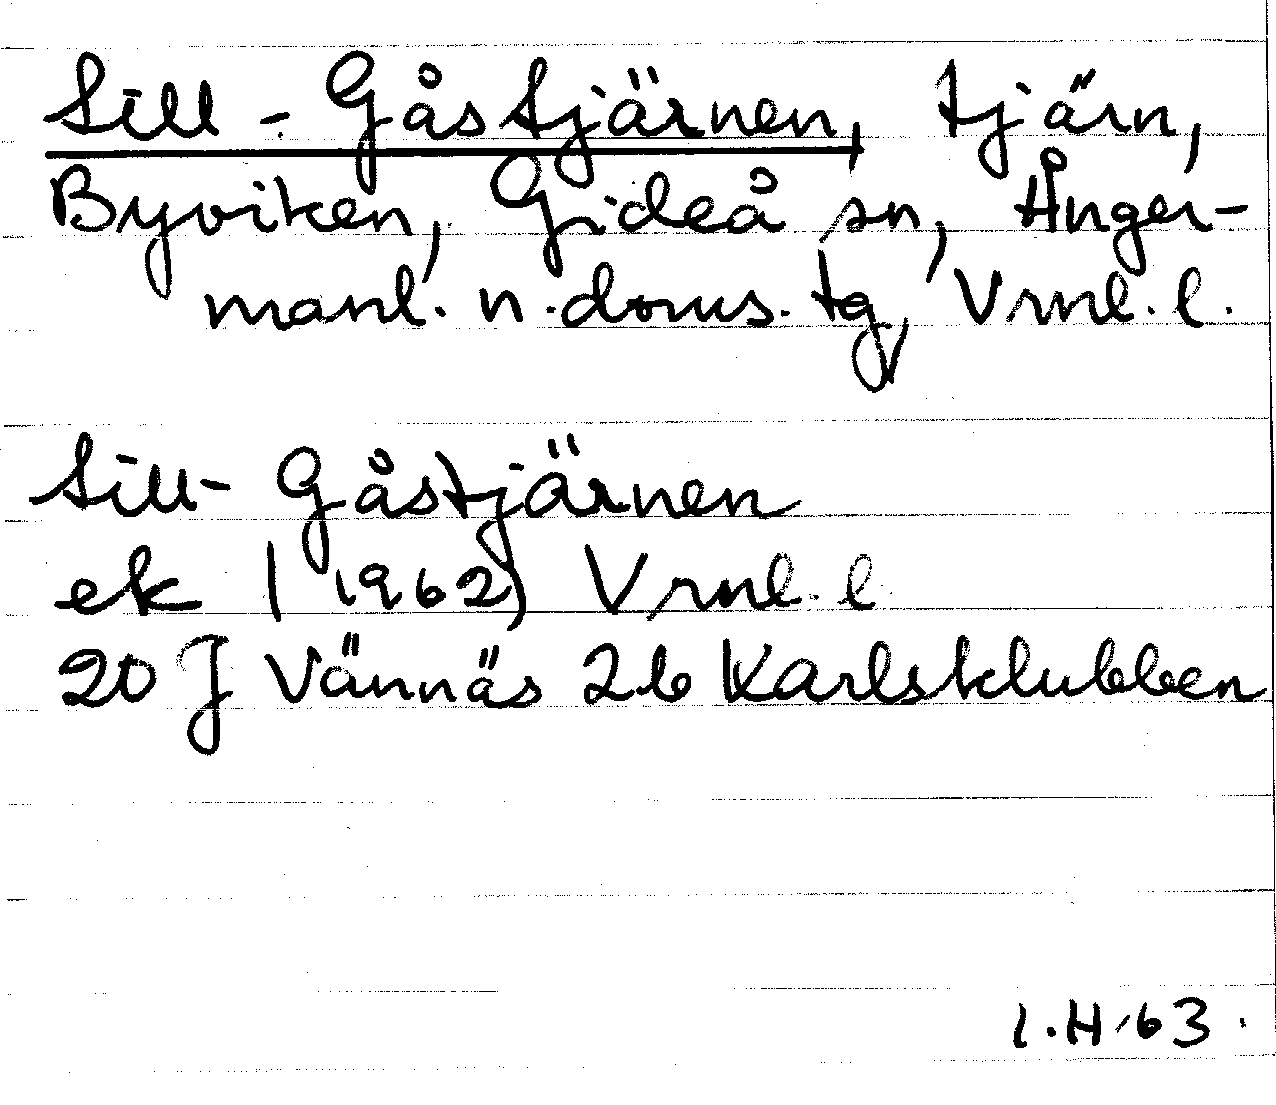 Sill-Gåstjärnen, tjärn,
Byviken, Gideå sn, Ånger-
manl. n. doms. tg, Vrml. l.
Sill-Gåstjärnen
ek (1962) Vrml. l
20 J Vännäs 2b Karlsklubben
I.H. 63.